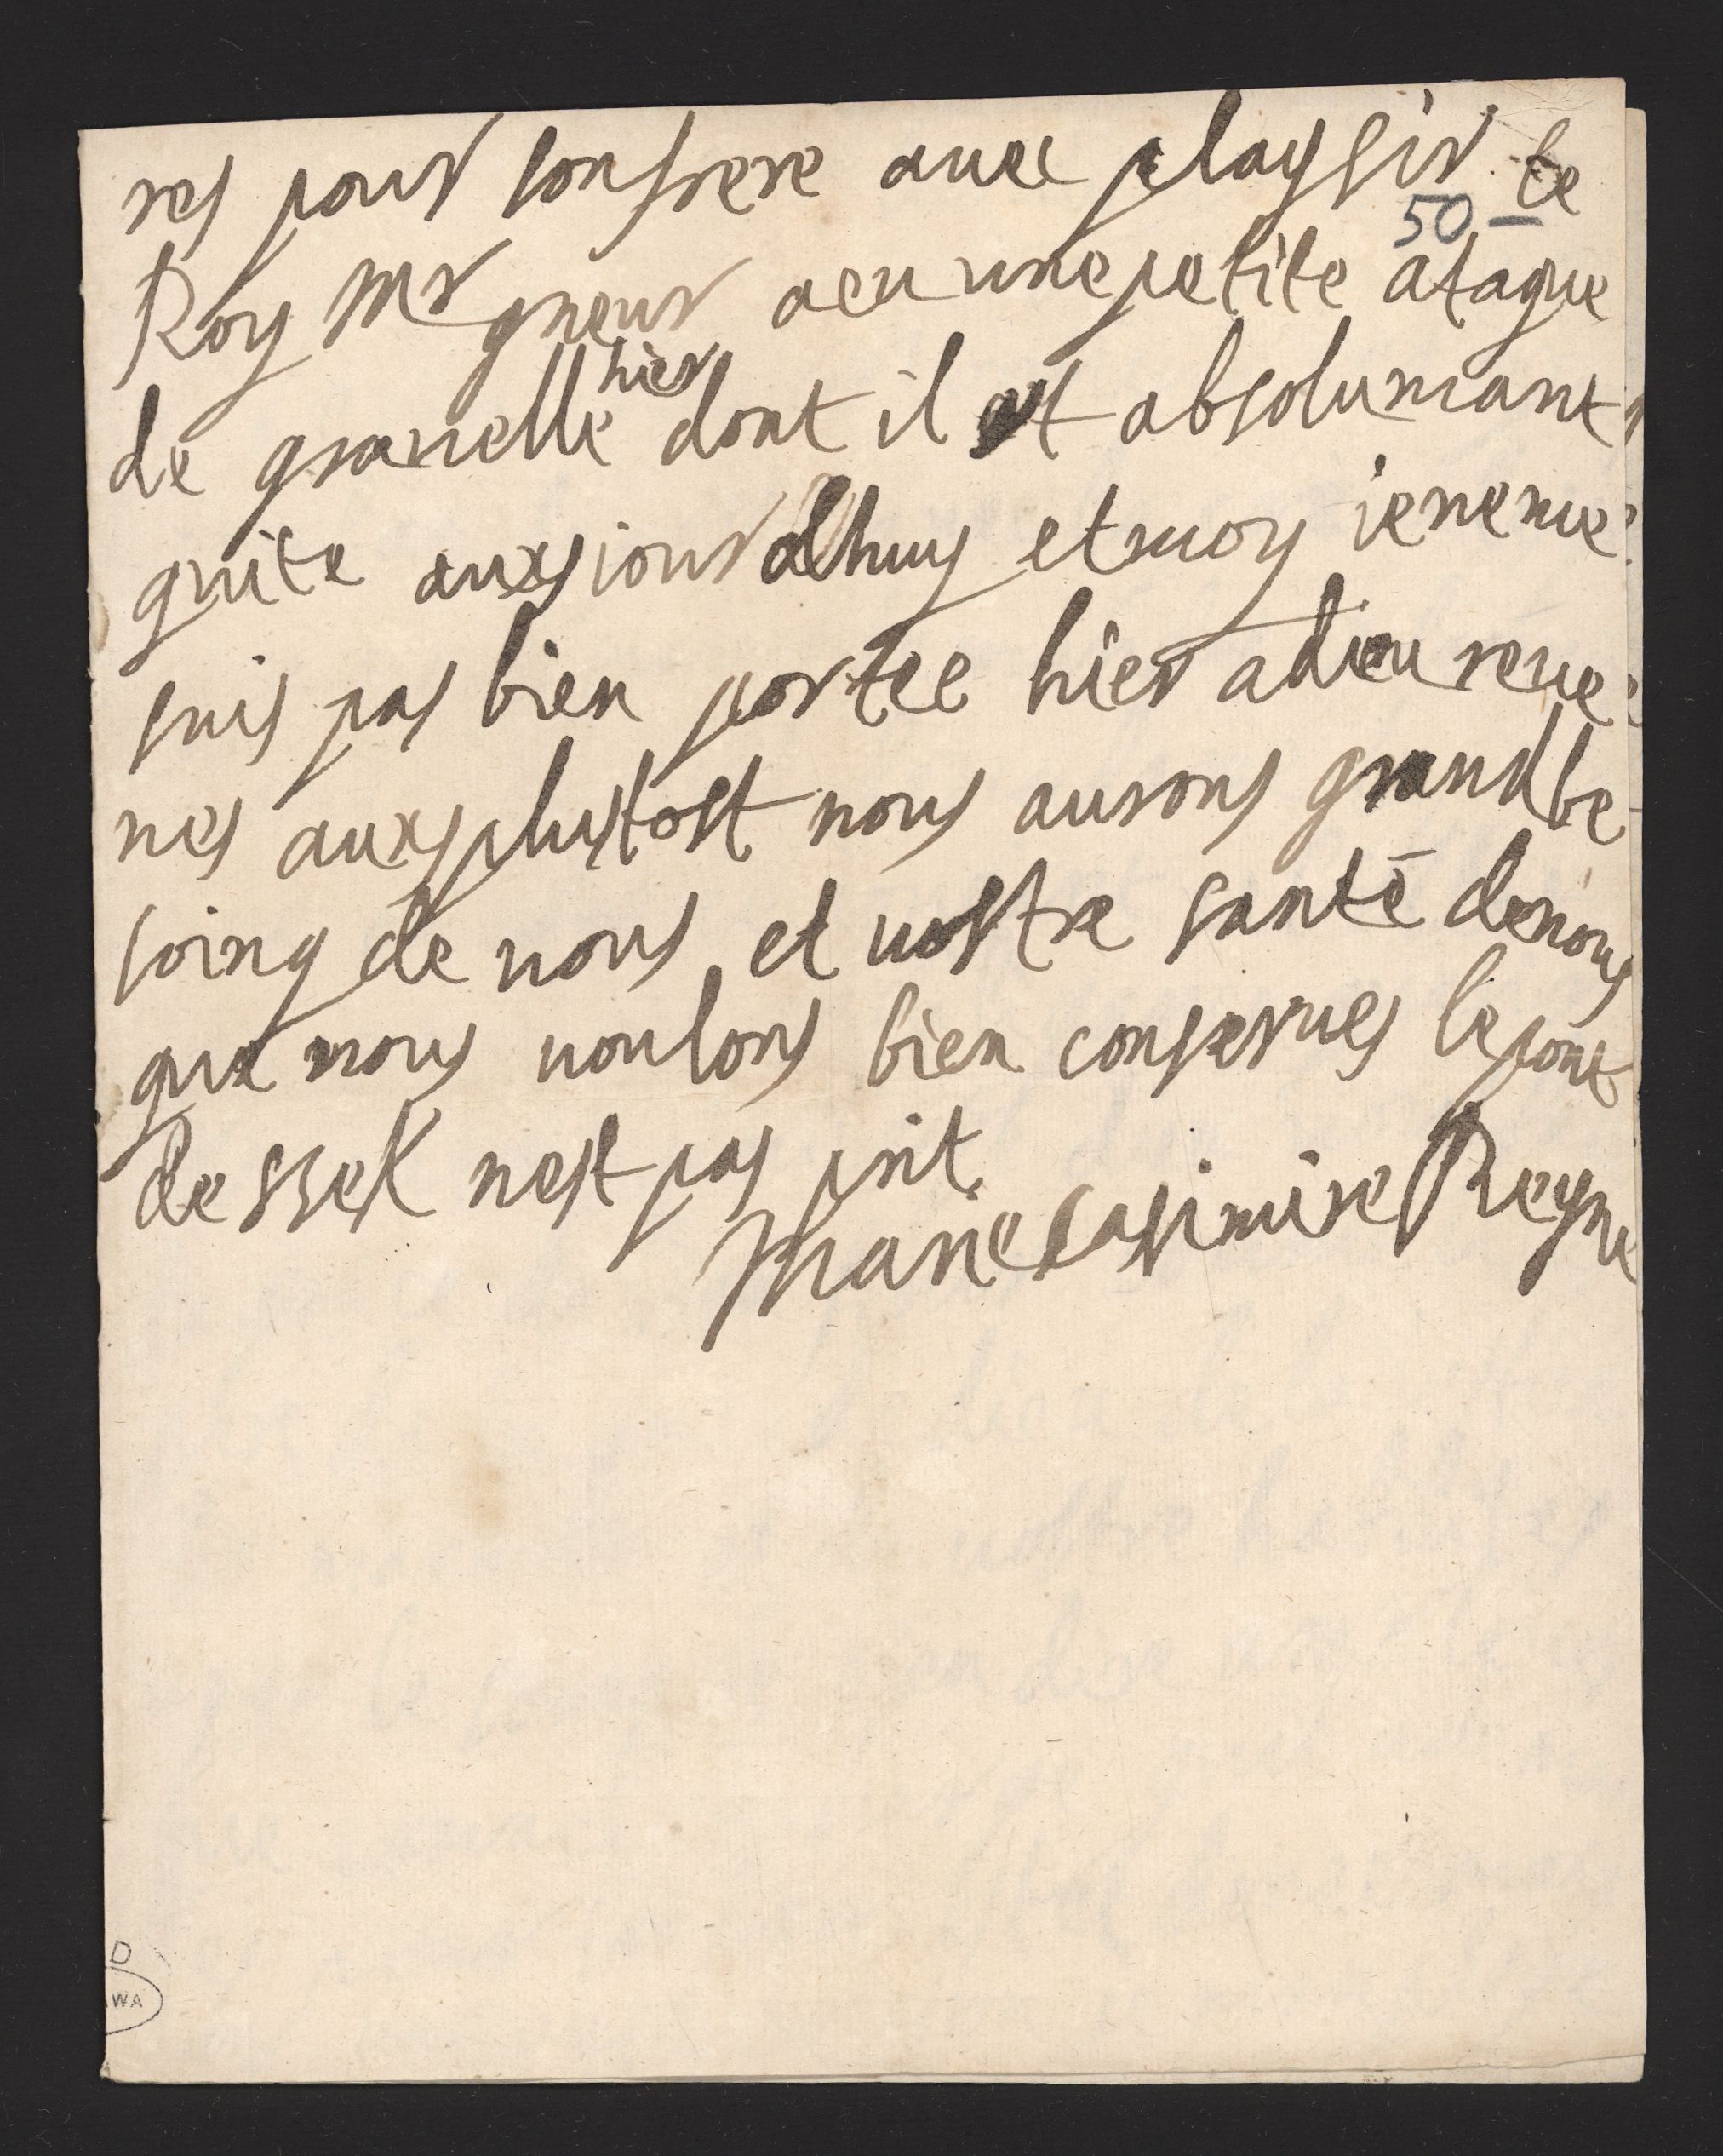 res pour son frere avec playsir le
50 –
Roy Mr gneur a eu une petite ataque
hier
de gravelle dont il est absolumant
quite auxs jour dhuy et moy ie ne me
suis pas bien portee hier adieu reve
nes auxs plustost nous aurons grand be
soing de vous et vostre santé de nous
que nous voulons bien conserves le pont
de ssel nest pas prit
Marie Casimire Reyne
D
WA